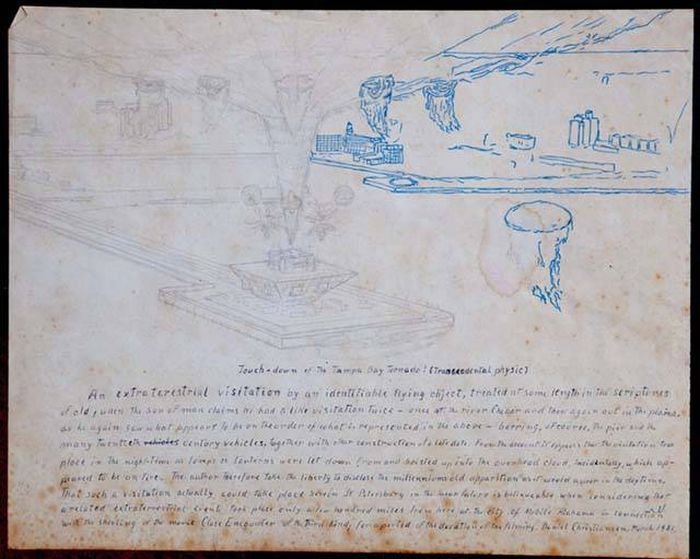 Touch-down of the Tampa Bay Tornado! (Transcendental physic)
An extraterestrial visitation by an identifiable flying object, treated at some length in the scriptures
of old, when the son of man claims he had a like visitation twice - once at the river Chebar and then again out in the plains,
as he again saw what appears to be on the order of what is represented in the above - barring, of course, the pier and the
many twentieth vehicles century vehicles, together with other construction of a late date. From the account it appears that the visitation took
place in the night-time as lamps or lanterns were let down from and hoisted up into the overhead cloud, incidentaly, which ap-
peared to be on fire. The author therefore take the liberty to disclose the millennium old apparition as it would appear in the daytime.
That such a visitation actually could take place herein St Petersburg in the near future is believeable when considering that
a related extraterrestrial event took place only a few hundred miles from here at the City of Mobile Alabama in connection
with the shooting of the movie Close Encounter of the Third Kind, for a period of the duration of the filming. Daniel Christiansen, March 1981